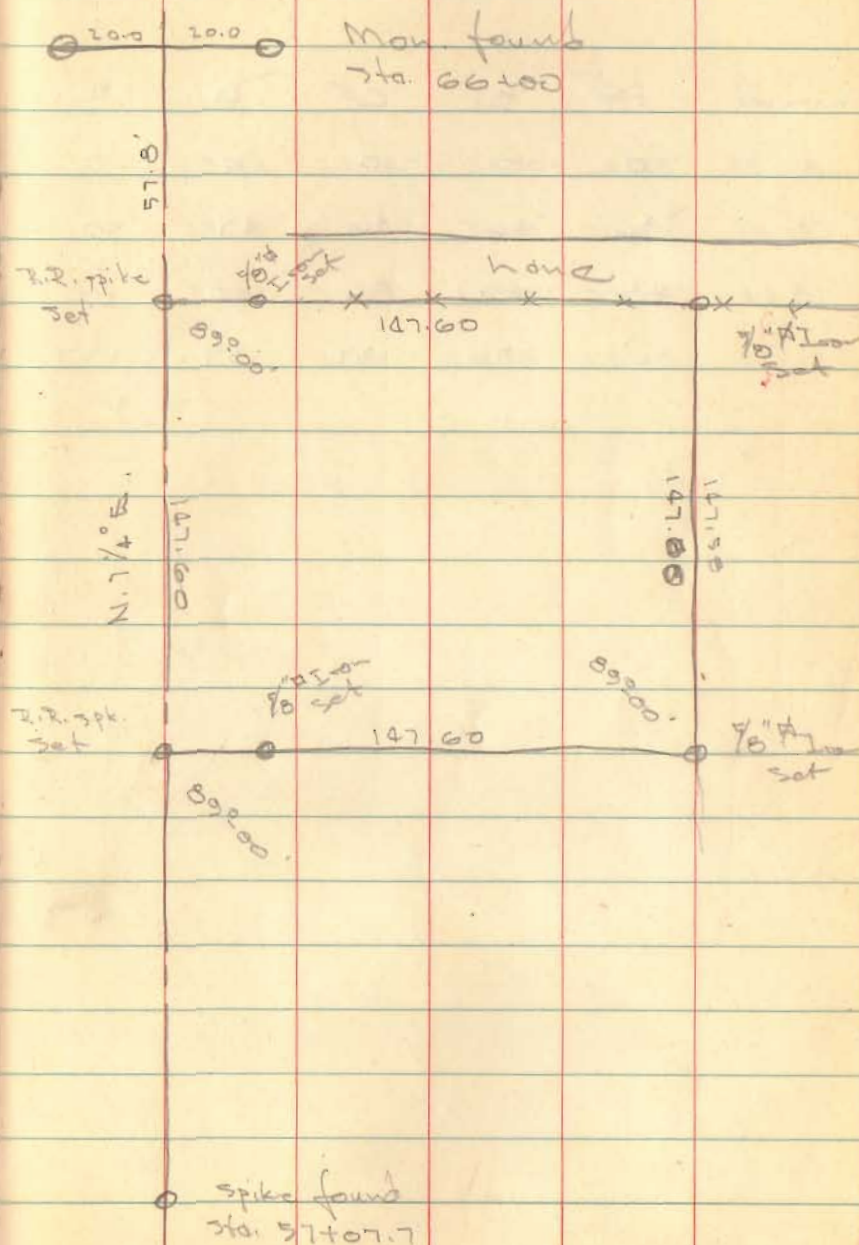 20.0 20.0
Mon. found
Sta. 66+00
57.8'
R.R. spike
Set
5/8"⌀ Iron
set
hand
147.60
89°00'
5/8"⌀ Iron
Set
N. 7 1/4° E.
147.60
147.50
R.R. spk.
Set
5/8"⌀ Iron
set
89°00'
147.60
5/8"⌀ Iron
set
89°00'
Spike found
Sta. 57+07.7